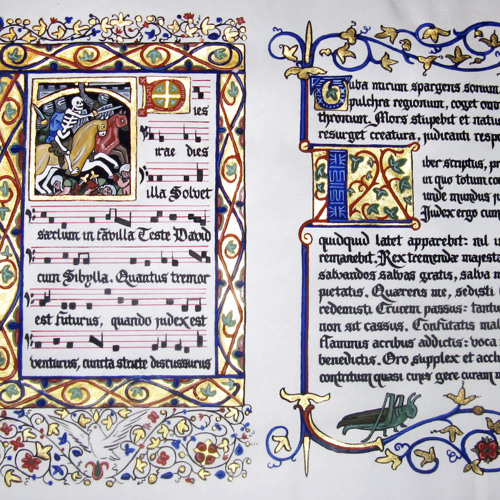 Dies
irae dies
illa Solvet
sæclum in favilla Teste David
cum Sibylla. Quantus tremor
est futurus, quando judex est
venturus, cuncta stricte discussurus
Tuba mirum spargens sonum
pulchra regionum, coget omn
thronum. Mors stupebit et natu
resurget creatura, judicanti resp
Liber scriptus, pr
in quo totum con
unde mundus ju
Judex ergo cum
quidquid latet apparebit: nil u
remanebit. Rex tremendæ majesta
salvandos salvas gratis, salva m
pietatis. Quarens me, sedisti
redemisti Crucem passus: tantu
non sit cassus. Confutatis ma
flammis acribus addictis: voca
benedictis. Oro supplex et accl
contritum quasi cinis gere curam m